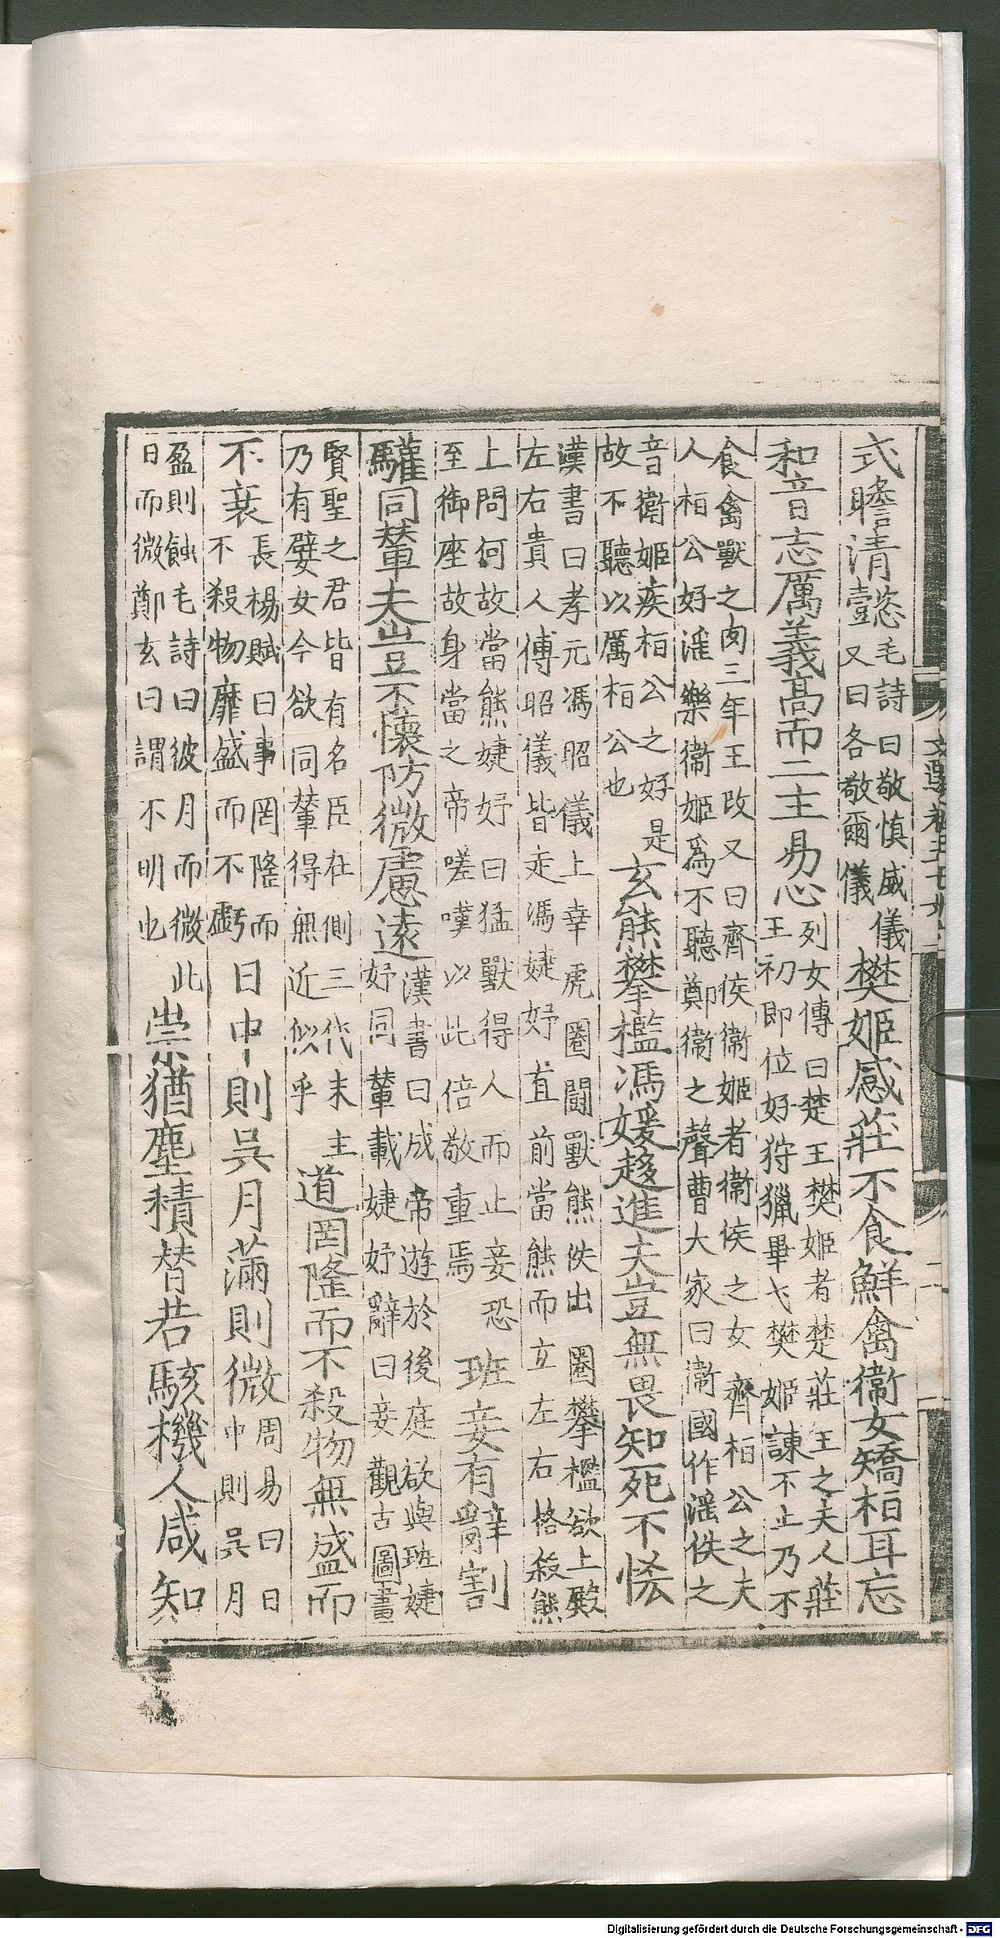 文選卷五十六
二
式瞻清懿毛詩曰敬慎威儀
又曰各敬爾儀
樊姬感莊不食鮮禽衛女矯桓耳忘
和音志厲義高而二主易心列女傳曰楚王樊姬者楚莊王之夫人莊
王初即位好狩獵畢弋樊姬諫不止乃不
食禽獸之肉三年王改又曰齊侯衛姬者衛侯之女齊桓公之夫
人桓公好淫樂衛姬為不聽鄭衛之聲曹大家曰衛國作淫泆之
音衛姬疾桓公之好是
故不聽以厲桓公也
玄熊攀檻馮媛趍進夫豈無畏知死不恡
漢書曰孝元馮昭儀上幸虎圈鬬獸熊佚出圈攀檻欲上殿
左右貴人傅昭儀皆走馮婕妤直前當熊而立左右格殺熊
上問何故當熊婕妤曰猛獸得人而止妾恐
至御座故身當之帝嗟嘆以此倍敬重焉
班妾有辭割
驩同輦夫豈不懷防微慮遠漢書曰成帝遊於後庭欲與班婕
妤同輦載婕妤辭曰妾觀古圖畫
賢聖之君皆有名臣在側三代末主
乃有嬖女今欲同輦得無近似乎
道罔隆而不殺物無盛而
不衰長楊賦曰事罔隆而
不殺物靡盛而不虧
日中則昃月滿則微周易曰日
中則昃月
盈則蝕毛詩曰彼月而微此
日而微鄭玄曰謂不明也
崇猶塵積替若駭機人咸知
Digitalisierung gefördert durch die Deutsche Forschungsgemeinschaft - DFG